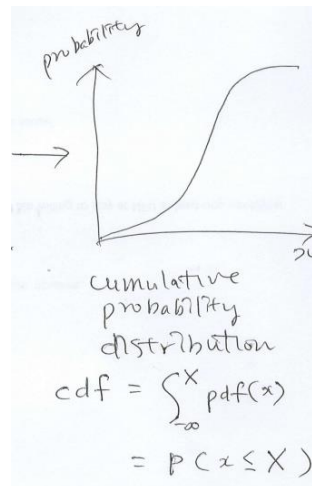 probability
x
cumulative
probability
distribution
cdf = ∫_{-∞}^{X} pdf(x)
= P(x ≤ X)